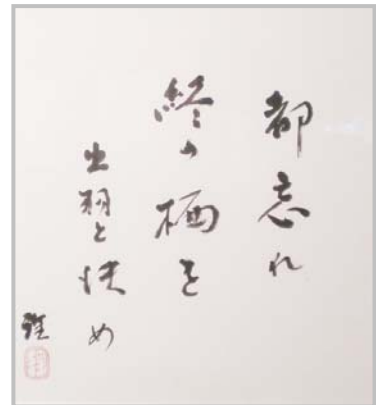 都忘れ
終の栖を
出羽と決め